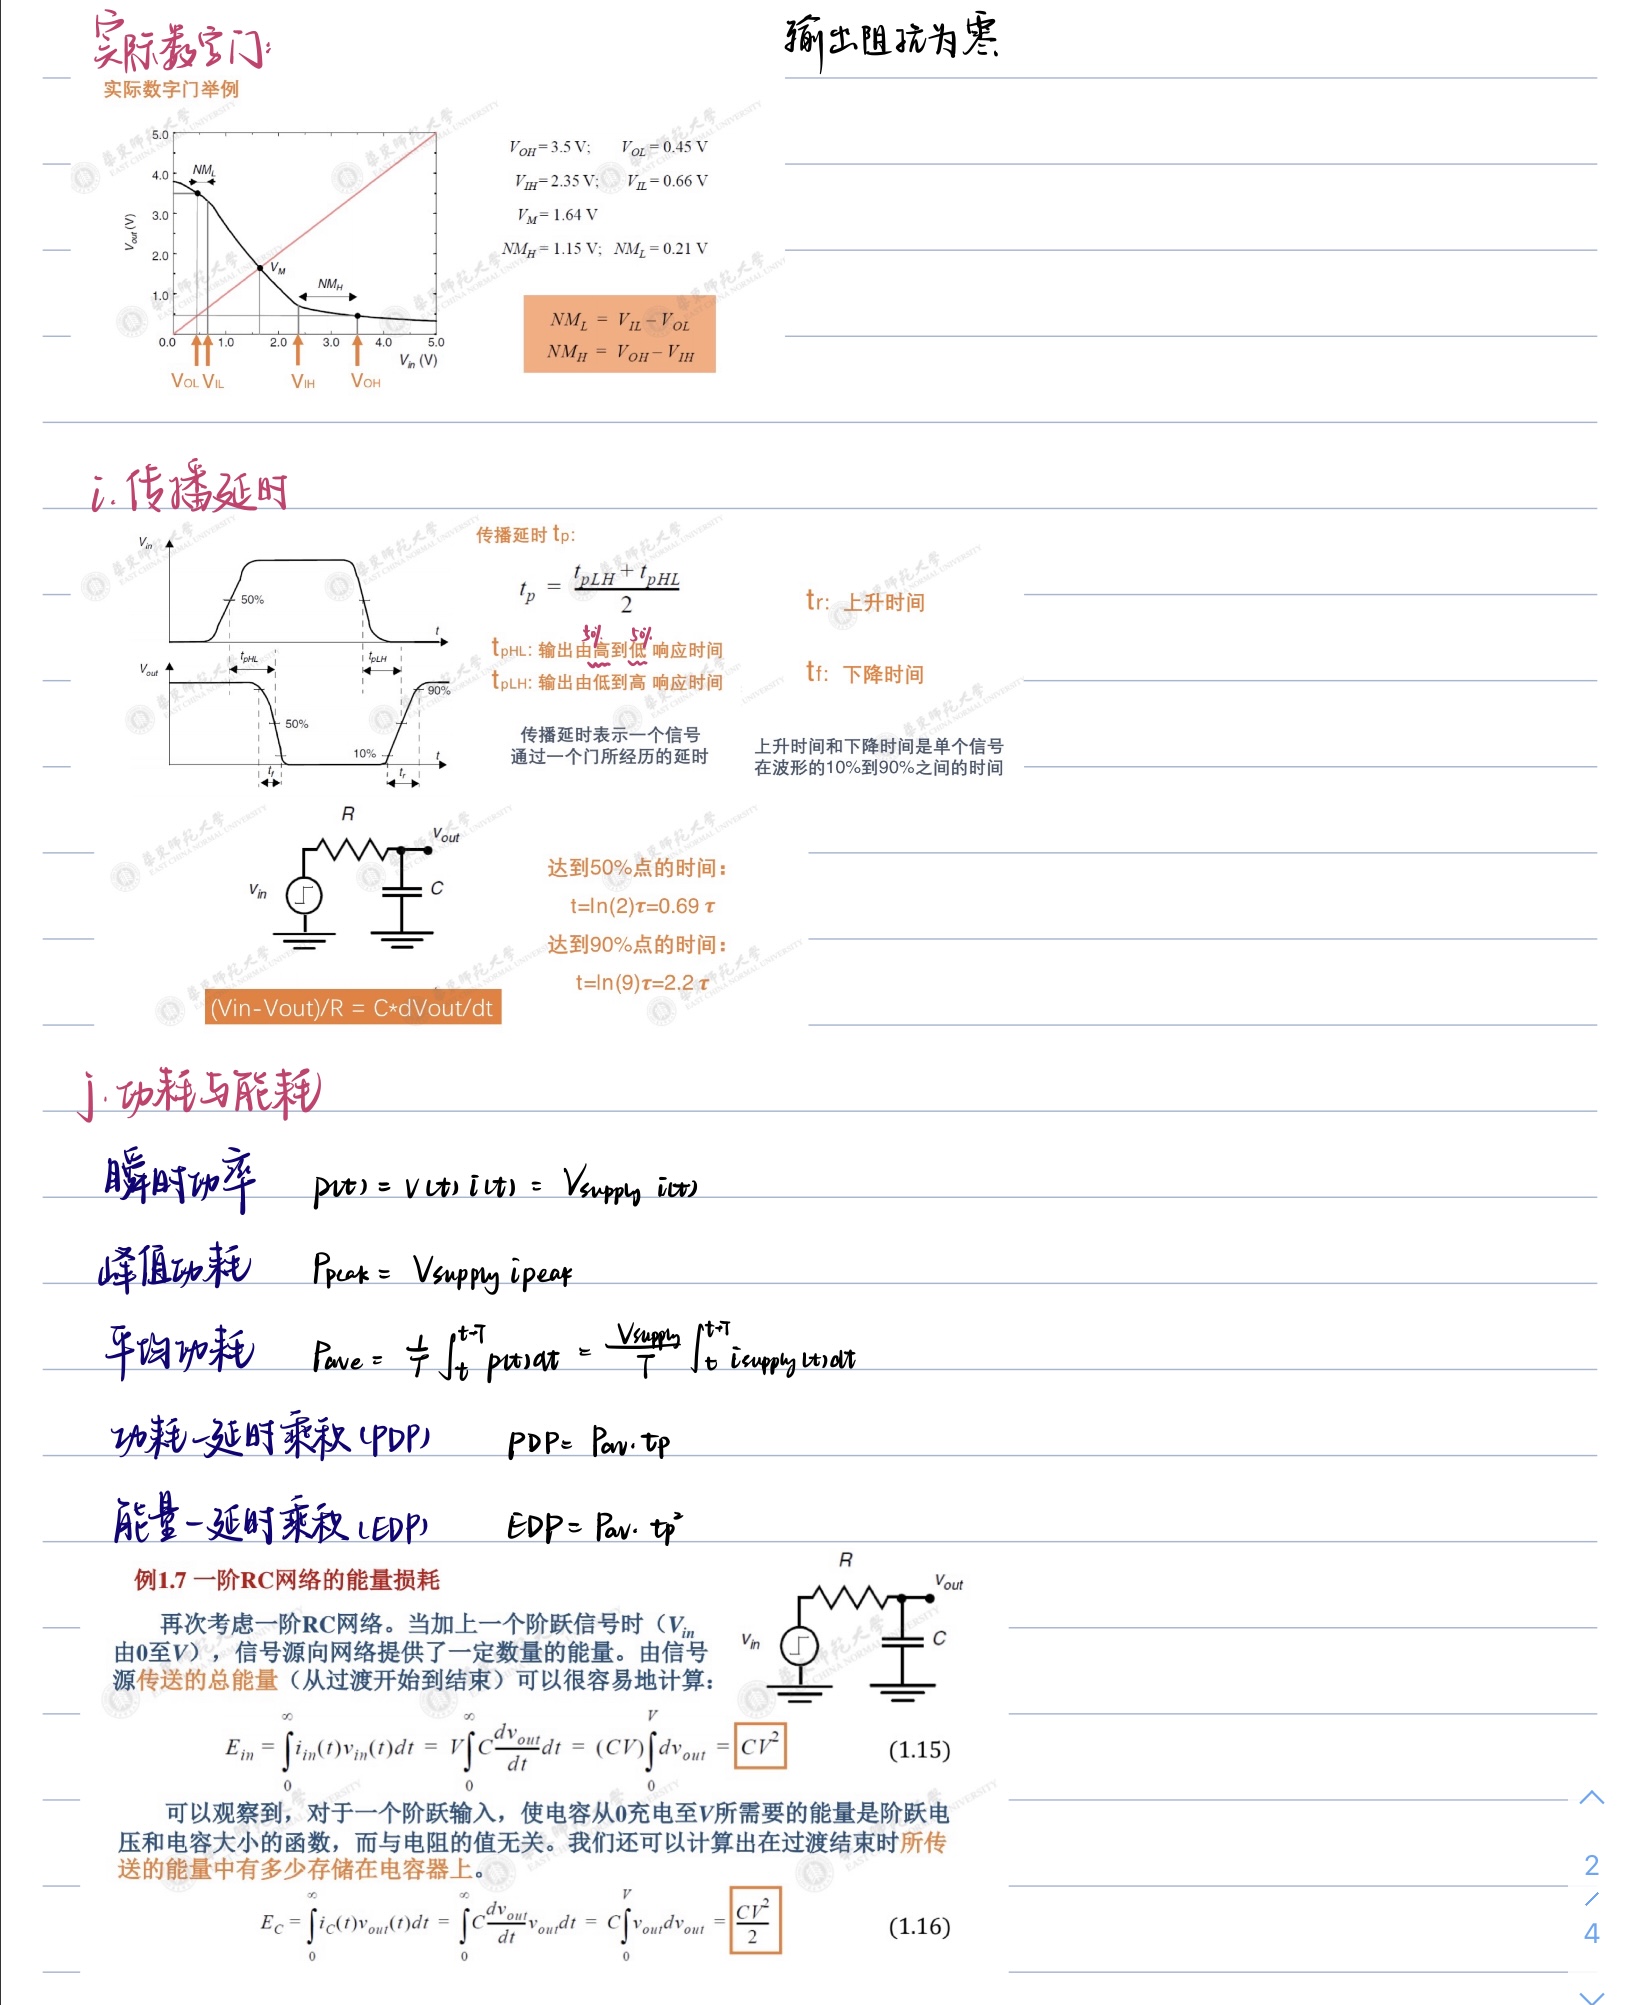 实际数字门:
输出阻抗为零
实际数字门举例
5.0
4.0
3.0
2.0
1.0
0.0 1.0 2.0 3.0 4.0 5.0
Vout (V)
Vin (V)
NML
VM
NMH
VOL VIL VIH VOH
VOH = 3.5 V; VOL = 0.45 V
VIH = 2.35 V; VIL = 0.66 V
VM = 1.64 V
NMH = 1.15 V; NML = 0.21 V
NML = VIL – VOL
NMH = VOH – VIH
i. 传播延时
Vin
50%
t
tpHL tpLH
Vout
90%
50%
10%
t
tf tr
传播延时 tp:
tp = (tpLH + tpHL) / 2
50% 50%
tpHL: 输出由高到低 响应时间
tpLH: 输出由低到高 响应时间
传播延时表示一个信号
通过一个门所经历的延时
tr: 上升时间
tf: 下降时间
上升时间和下降时间是单个信号
在波形的10%到90%之间的时间
R
Vout
Vin
C
(Vin-Vout)/R = C*dVout/dt
达到50%点的时间:
t=ln(2)τ=0.69 τ
达到90%点的时间:
t=ln(9)τ=2.2 τ
j. 功耗与能耗
瞬时功率 p(t) = v(t) i(t) = Vsupply i(t)
峰值功耗 Ppeak = Vsupply ipeak
平均功耗 Pave = 1/T ∫t^t+T p(t)dt = Vsupply/T ∫t^t+T isupply(t)dt
功耗-延时乘积(PDP) PDP = Pav. tp
能量-延时乘积(EDP) EDP = Pav. tp²
例1.7 一阶RC网络的能量损耗
再次考虑一阶RC网络。当加上一个阶跃信号时(Vin
由0至V),信号源向网络提供了一定数量的能量。由信号
源传送的总能量(从过渡开始到结束)可以很容易地计算:
R
Vout
Vin
C
Ein = ∫0^∞ iin(t)vin(t)dt = V∫0^∞ C dvout/dt dt = (CV)∫0^V dvout = CV² (1.15)
可以观察到,对于一个阶跃输入,使电容从0充电至V所需要的能量是阶跃电
压和电容大小的函数,而与电阻的值无关。我们还可以计算出在过渡结束时所传
送的能量中有多少存储在电容器上。
EC = ∫0^∞ iC(t)vout(t)dt = ∫0^∞ C dvout/dt vout dt = C∫0^V vout dvout = CV²/2 (1.16)
2
/
4
華東師範大學
EAST CHINA NORMAL UNIVERSITY